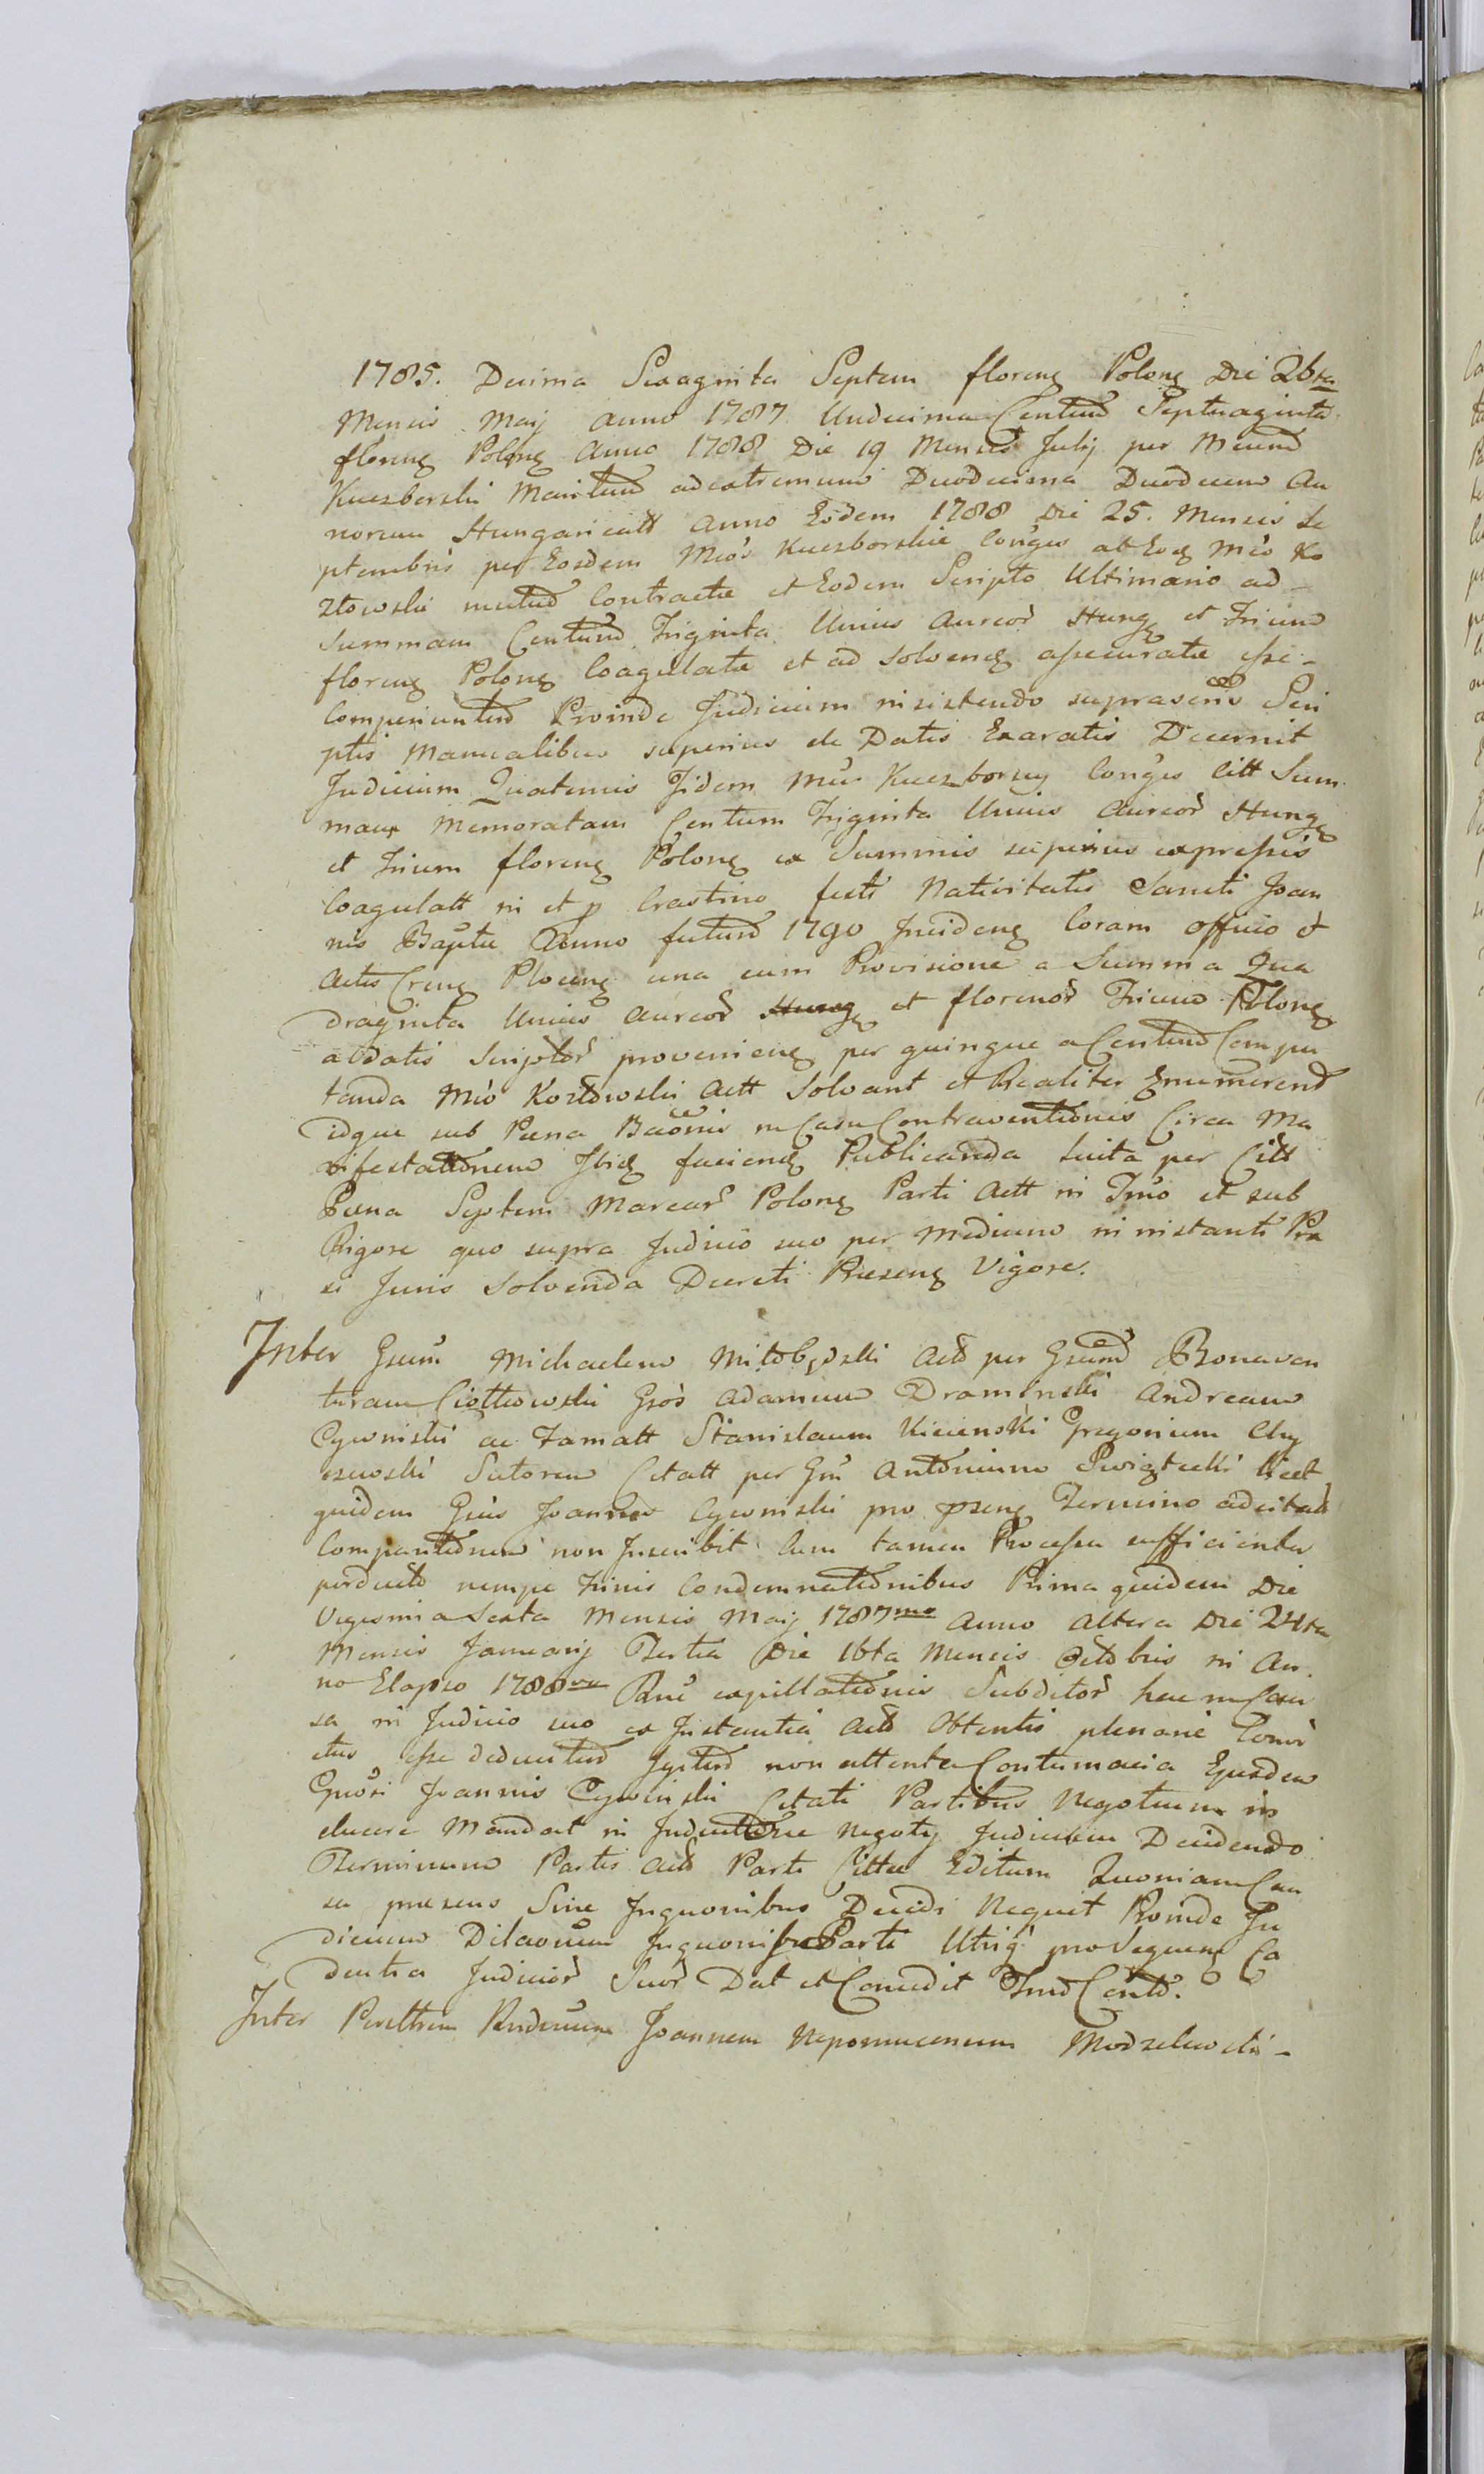 1785. Decima Sexaginta Septem floreng Polong Die 26ta
Mensis Maij Anno 1787 Undecima Centum Septuaginta
floreng Polong Anno 1788 Die 19 Mensis Julij per Mcum
Kuczborski Maritum ad extremum Duodecima Duodecem Au
norum Hungaricall Anno Eodem 1788 Die 25. Mensis Se
ptembris per Eosdem Mcos Kuczborskie Conges ab Eod Mco Ko
złowski mutuo Contractae et Eodem Scripto Ultimario ad
Summam Centum Triginta Unius Aureor Hung et Trium
floreng Polong Coagulatae et ad Solvend assecuratae esse
Comperiuntur Proinde Judicium insistendo suprascriis Scri
ptis Manualibus superius de Datis Exaratis Decernit
Judicium Quatenus Iidem Mci Kuczborscy Conges Citt Sum
mam Memoratam Centum Triginta Unius Aureor Hung
et Trium floreng Polong ex Summis superius expressis
Coagulatt in et p Crastino festi Nativitatis Sancti Joan
nis Baptae Anno futuro 1790 Incideng Coram Officio et
Actis Creng Ploceng una cum Provisione a Summa Qua
draginta Unius Aureor Hung et florenor Trium Polong
a Datis Scriptor provenieng per quinque a Centum Compu
tanda Mco Kozłowski Actt Solvant et Realiter Enumerent
idque sub Paena Baonis in Casu Contraventionis Circa Ma
nifestationem Ibid faciend Publicanda Luita per Citt
Paena Septem Marcar Polong Parti Actt in Tmo et sub
Rigore quo supra Judicio suo per Medium in instanti Pra
xi Juris Solvenda Decreti Praeseng Vigore.
Inter Gsum Michaelem Actt per Gsum Bonaven
turam Ciołkowski Gsos Adamum Dramiński Andream
Cywinski ac Famatt Stanislaum Kicienski Gregorium
Sutorem Citatt per Gm Antonium licet
quidem Gsus Joannes Cywinski pro pseng Termino adcitatt
Comparitionem non Inscribit Cum tamen Processu sufficienter
perducto nempe trinis Condemnationibus Prima quidem Die
Vigesima Sexta Mensis Maij 1787mo Anno Altera Die 24ta
Mensis Januarij Tertia Die 16ta Mensis Octobris in An
no Elapso 1788vo Rne expillationis Subditor hac in Cau
sa in Judicio suo ex Instantia Actt Obtentis plenarie Convi
ctus esse deducitur Igitur non attenta Contumacia Ejusdem
Gnosi Joannis Cywinski Citati Partibus Negotium in
ducere Mandat in Inductione Negoty Judicium Decidendo
Terminum Partis Actt Parti Cittae Editum Quoniam Cau
sa praesens Sine Inquonibus Decidi Nequit Proinde Ju
dicium Dilaonem Inquonibus Parti Utriq pro Sequend Ca
dentia Judicior Suor Dat et Concedit Tmo Conto.
Inter Perilltrem Rndum Joannem Nepomucenum Modzelewski